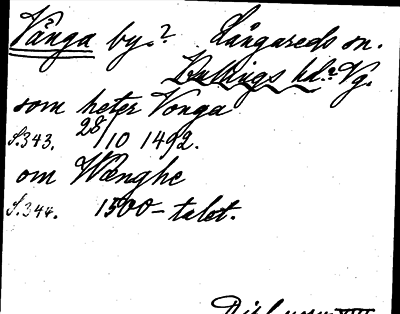 Vånga by? Långareds sn.
Kullings hd. Vg.
som heter Vonga
S. 343. 28/10 1492.
om Wænghe
S. 344. 1500-talet.